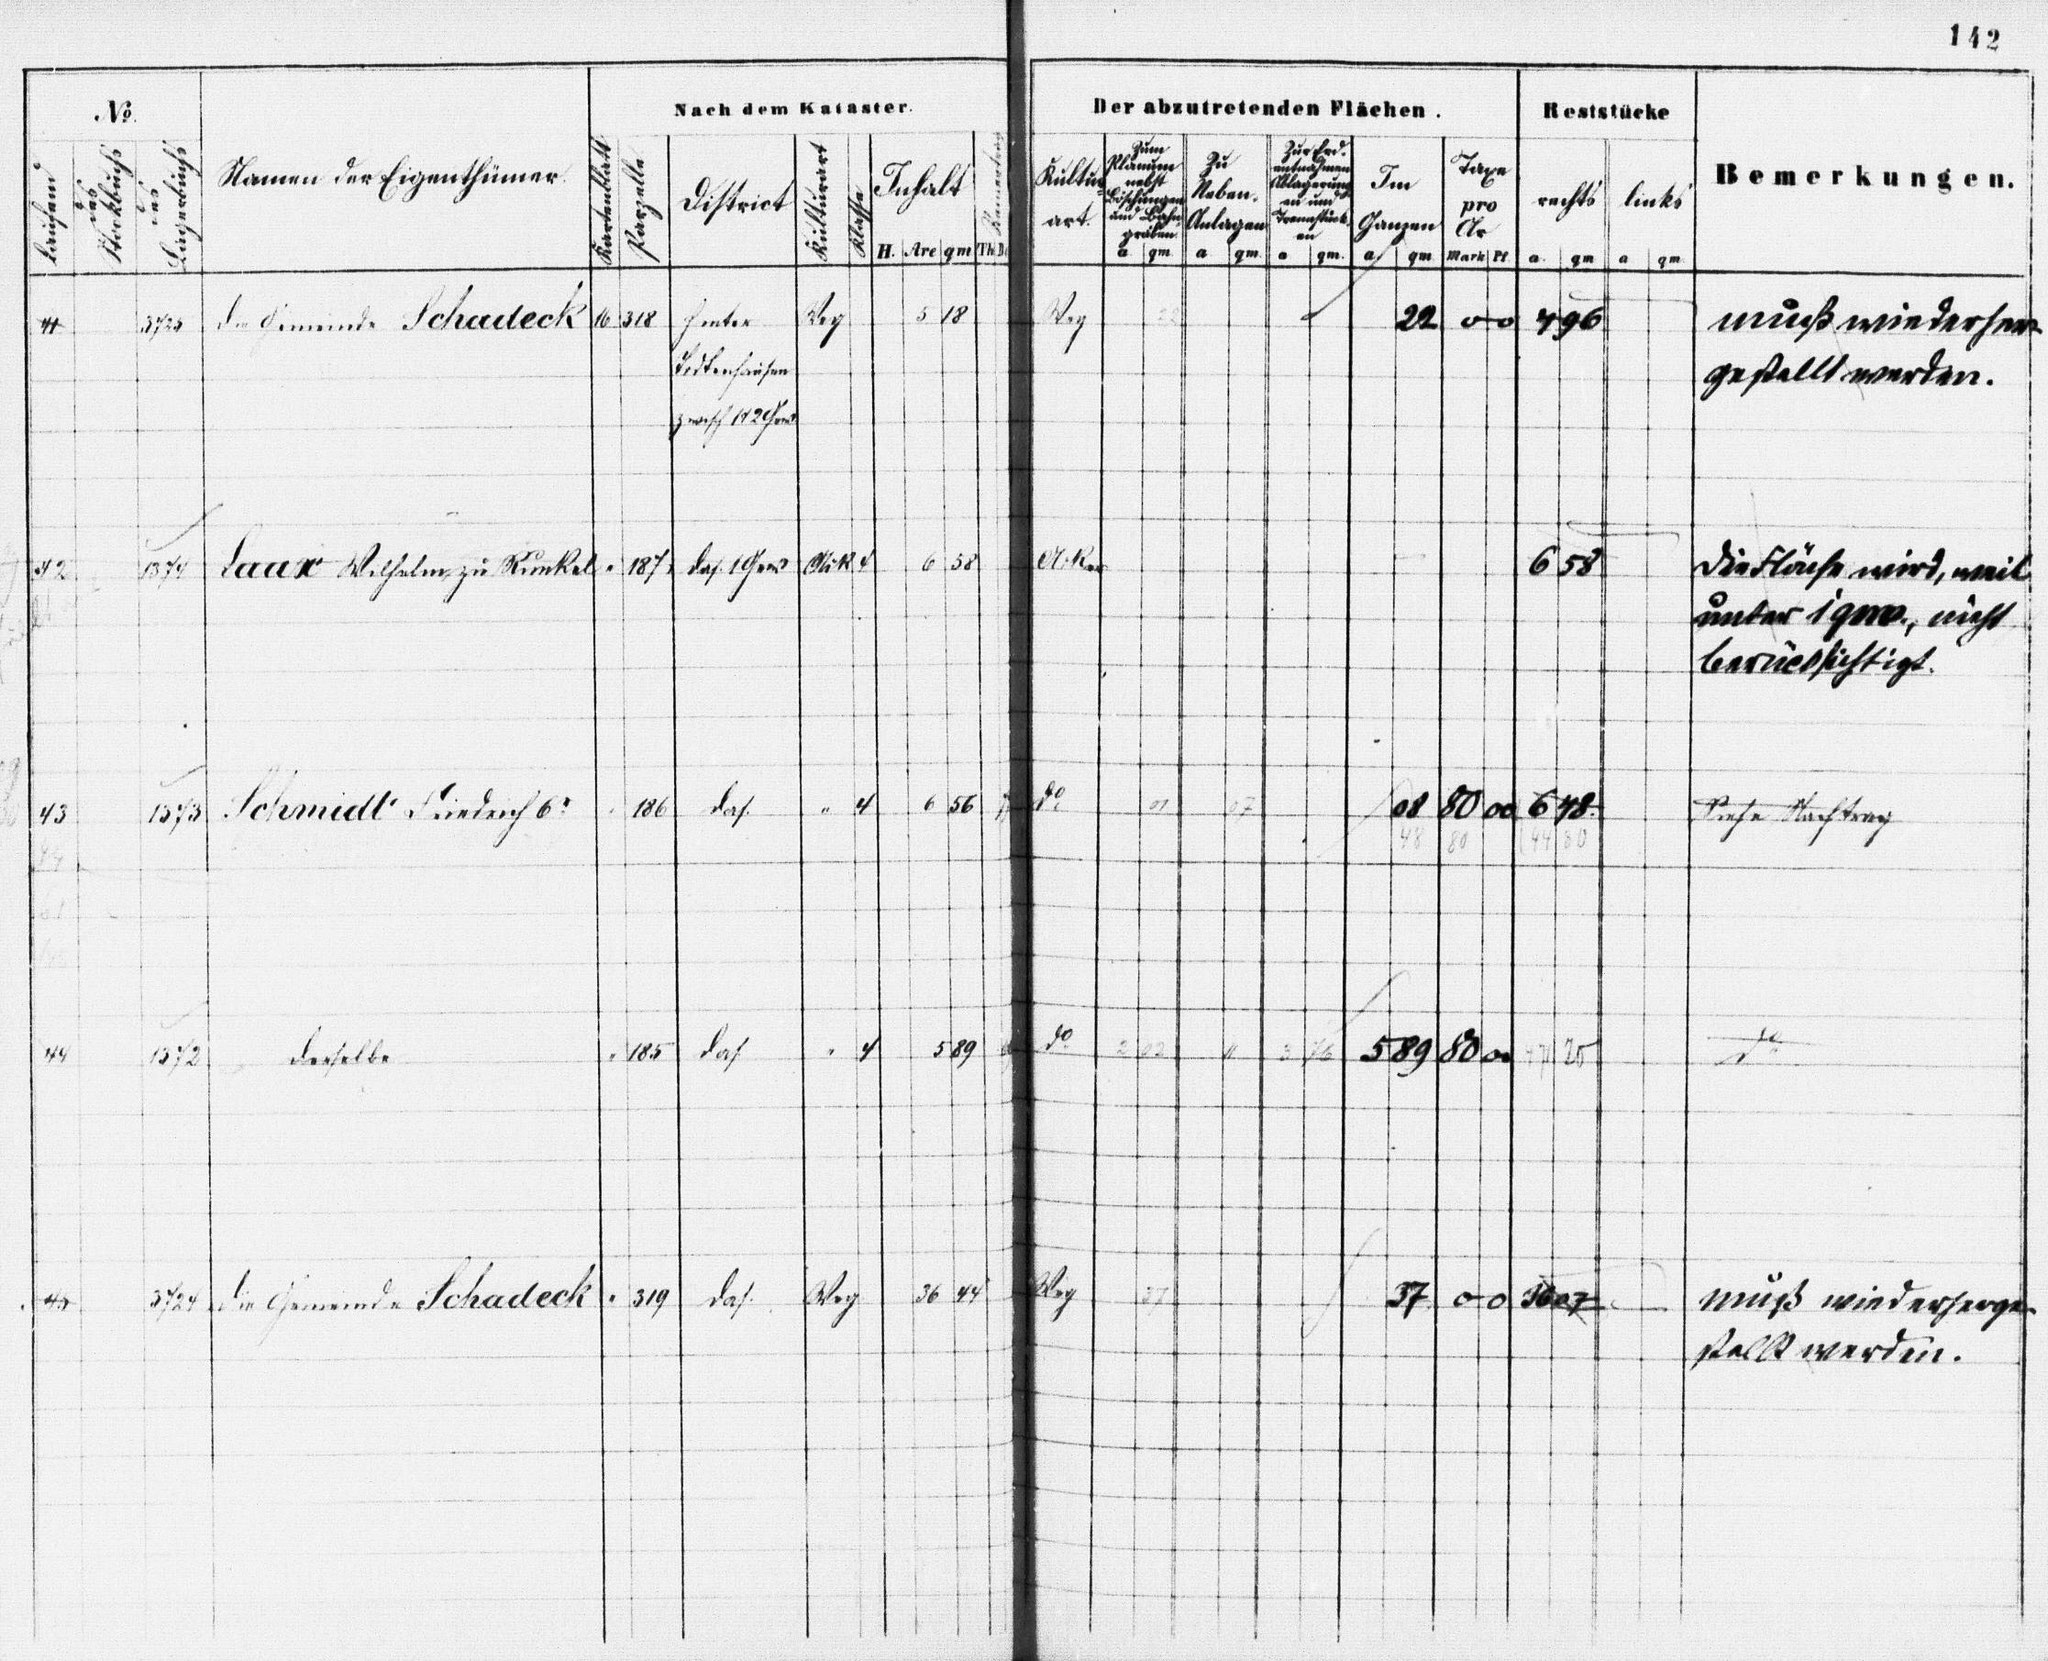 142
No.
Namen der Eigenthümer.
Nach dem Kataster.
Der abzutretenden Flächen.
Reststücke
Bemerkungen.
laufend
des Stockbuchs
des Lagerbuchs
Kartenblatt
Parzelle
District
Kulturart
Klasse
Inhalt
H. Are qm
Kultur-
art.
Zum
Planum
nebst
Böschungen
und Bahn-
gräben.
a qm
Zu
Neben-
Anlagen
a qm
Zur Erd-
entnahmen
Ablagerung
en und
Trennstück-
en
a qm.
Im
Ganzen
a qm
Taxe
pro
Ar
Mark Pf
rechts
a. qm
links
a qm
41 3725 die Gemeinde Schadeck 16 318 Hinter Weg 5 18 Weg 22 22 00 4 96 muß wiederher-
gestellt werden.
zwisch 1 & 2 Gew
42 1374 Laax Wilhelm zu Runkel " 187 das. 1 Gew Ack 4 6 58 Acker 6 58 die Fläche wird, weil
unter 1 qm., nicht
berücksichtigt.
43 1373 Schmidt Friedrich 6r " 186 das. " 4 6 56 do 01 07 08 80 00 6 48 Siehe Nachtrag
48 80 44 80
44 1372 derselbe " 185 das " 4 5 89 do 2 02 11 3 76 5 89 80 00 25 do
45 3724 die Gemeinde Schadeck " 319 das. Weg 36 44 Weg 37 37 00 36 07 muß wiederherge-
stellt werden.